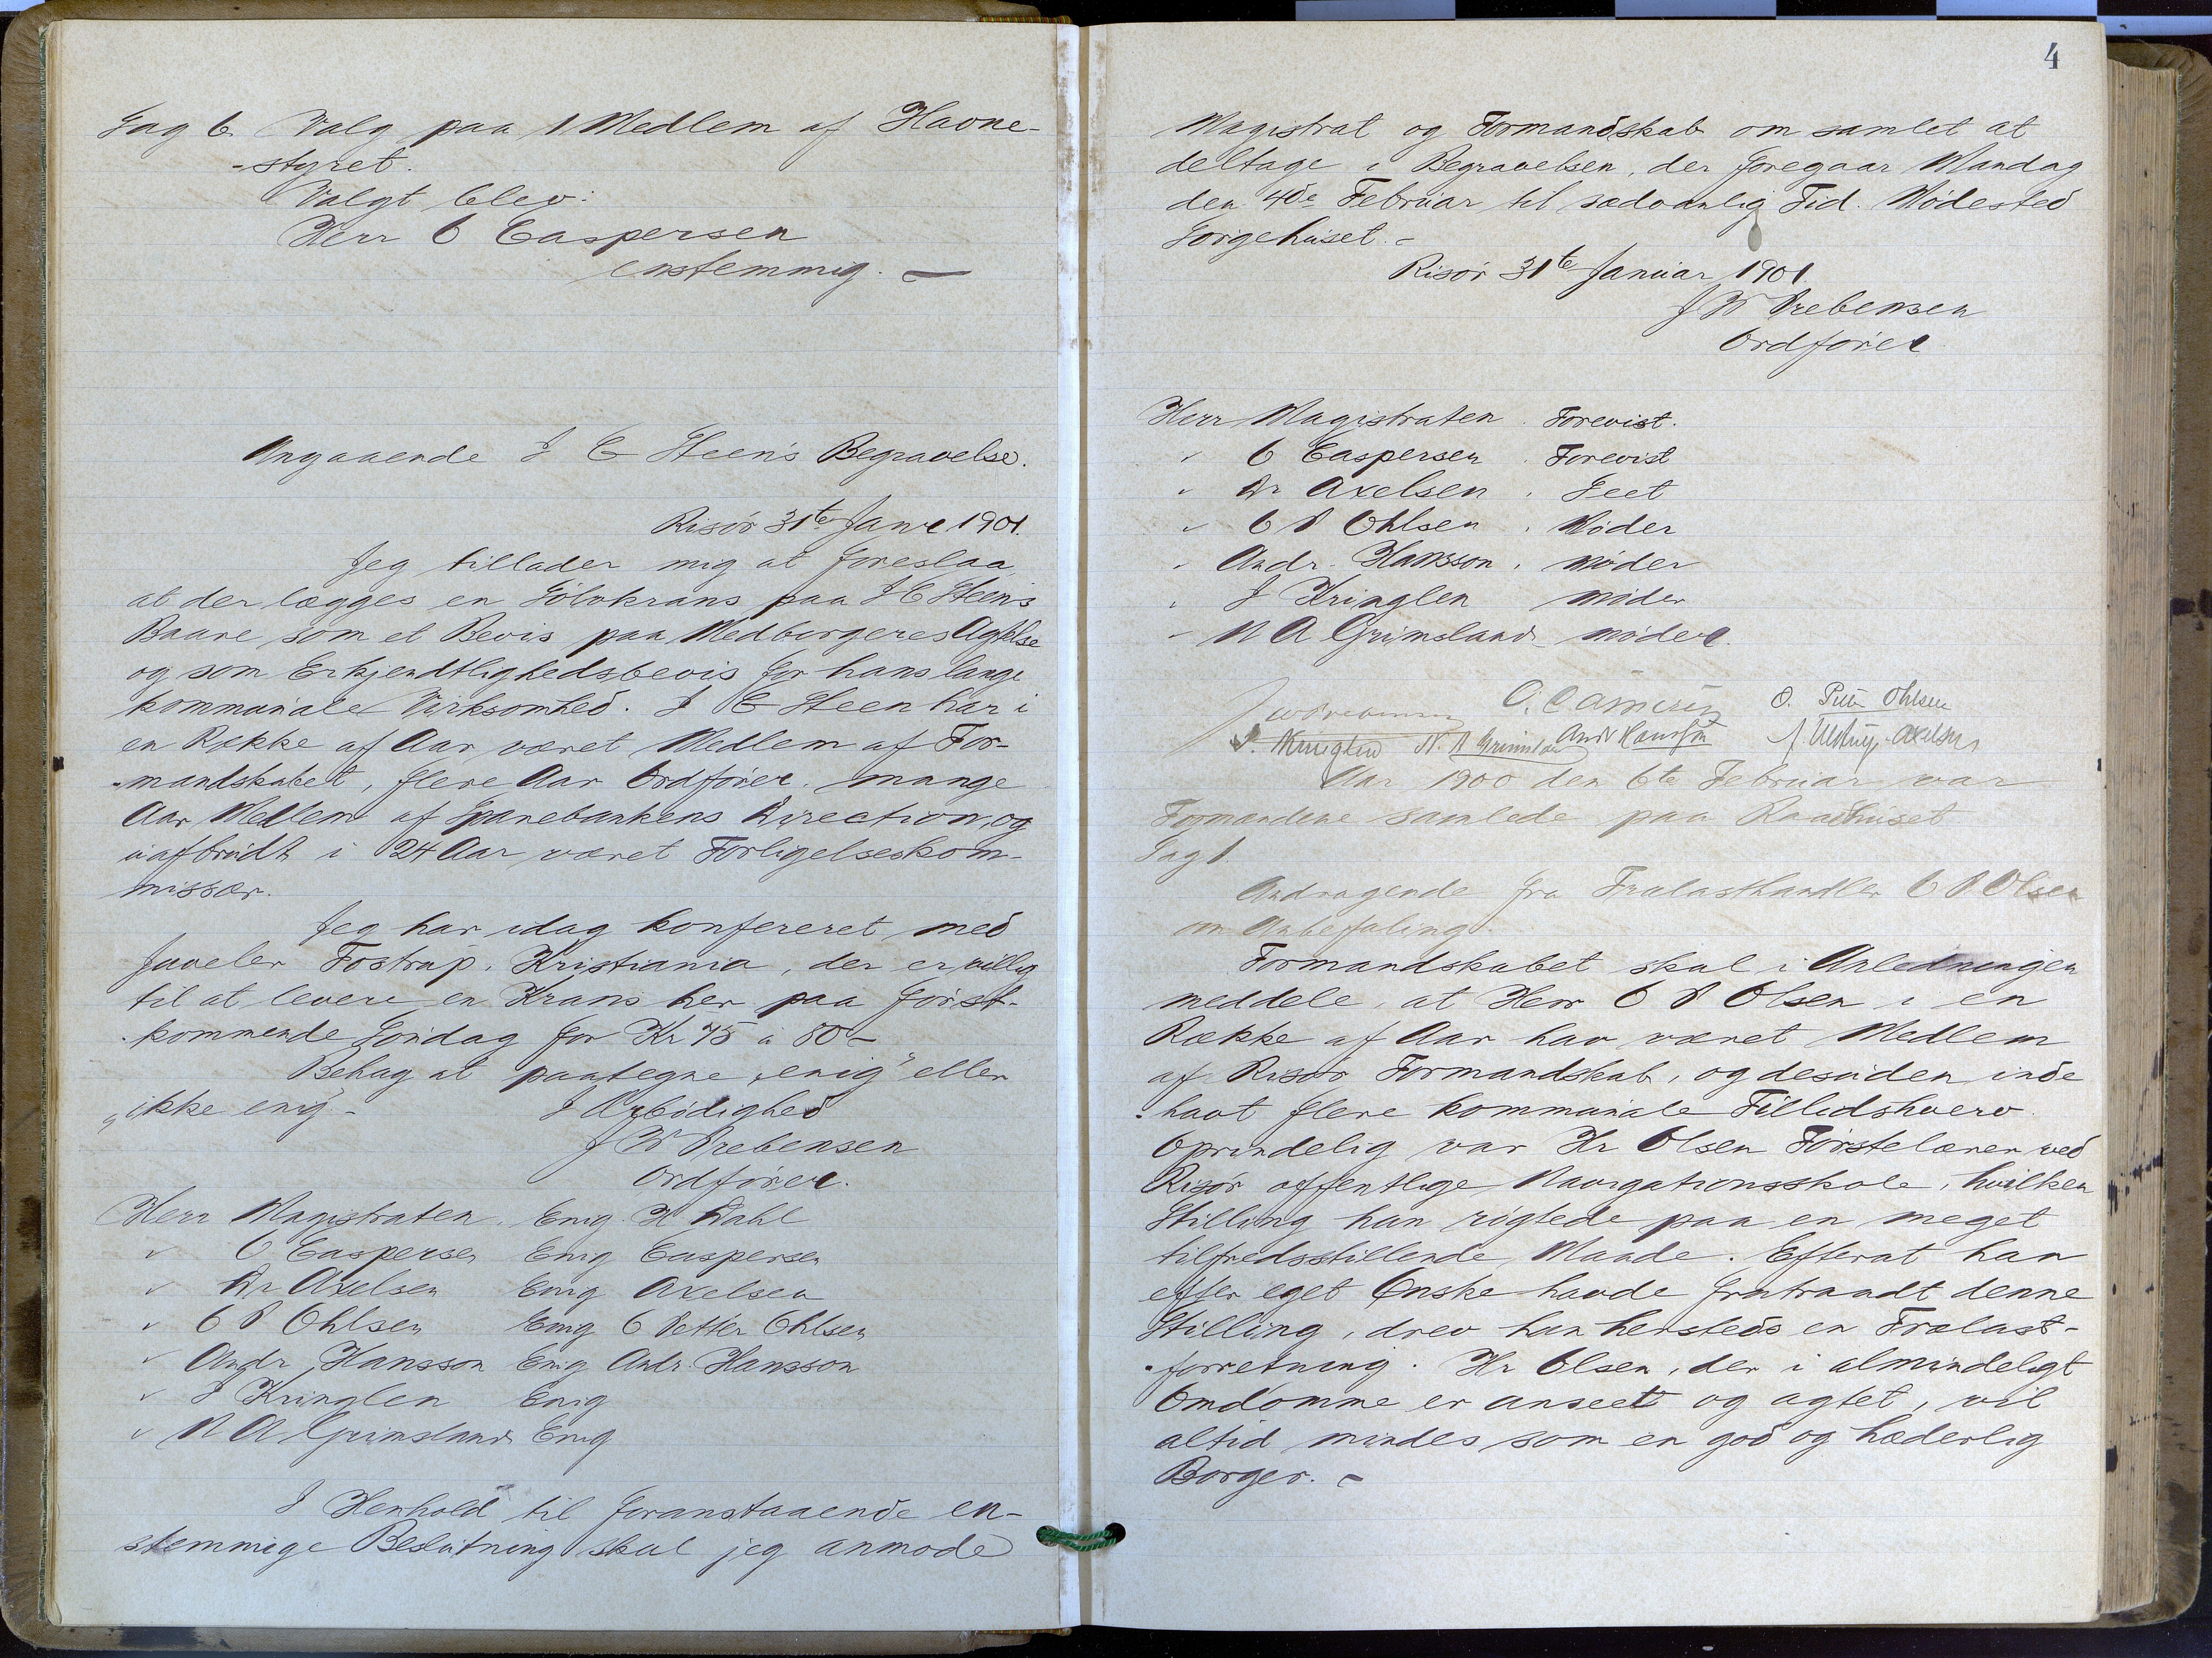 Sag 6. Valg paa 1 Medlem af Havne-
-styret.
Valgt blev:
Herr O Caspersen
enstemmig. —
Angaaende I C Steen's Begravelse.
Risør 31te Janr 1901.
Jeg tillader mig at foreslaa,
at der lægges en Sølvkrans paa I C Steen's
Baare som et Bevis paa Medborgeres Agtelse
og som Erkjendtlighedsbevis for hans lange
kommunale Virksomhed. I C Steen har i
en Række af Aar været Medlem af For-
-mandskabet, flere Aar Ordfører, mange
Aar Medlem af Sparebankens Direction, og
uafbrudt i 24 Aar været Forligelseskom-
missær.
Jeg har idag konfereret med
Juveler Tostrup, Kristiania, der er villig
til at levere en Krans her paa først-
-kommende Søndag for Kr 75 à 80 -
Behag at paategne „enig" eller
„ikke enig -
I Ærbødighed
J W Prebensen
Ordfører.
Herr Magistraten. Enig. H Dahl
" O Caspersen Enig Caspersen
" Dr Axelsen Enig Axelsen
" O P Ohlsen Enig O Petter Ohlsen
" Andr. Hansson Enig Andr. Hansson
" I Kringlen Enig
" N A Grimsland Enig
I Henhold til foranstaaende en-
stemmige Beslutning skal jeg anmode
4
Magistrat og Formandskab om samlet at
deltage i Begravelsen, der foregaar Mandag
den 4de Februar til sædvanlig Tid. Mødested
Sørgehuset. -
Risør 31te Januar 1901
J W Prebensen
Ordfører
Herr Magistraten. Forevist.
" O Caspersen. Forevist
" Dr Axelsen. Seet
" O P Ohlsen. Møder
" Andr. Hansson. møder
" I Kringlen møder
" N A Grimsland møder.
J W Prebensen O. Caspersen O. Petter Ohlsen
I. Kringlen N. A Grimsland Andr Hansson Axelsen
Aar 1900 den 6te Februar var
Formændene samlede paa Raadhuset
Sag 1
Andragende fra Trælasthandler O P Olsen
om Anbefaling.
Formandskabet skal i Anledningen
meddele, at Herr O P Olsen i en
Række af Aar har været Medlem
af Risør Formandskab, og desuden inde
-havt flere kommunale Tillidshverv.
Oprindelig var Hr Olsen Førstelærer ved
Risør offentlige Navigationsskole, hvilken
Stilling han røgtede paa en meget
tilfredsstillende Maade. Efterat han
efter eget Ønske havde fratraadt denne
Stilling, drev han hersteds en Trælast-
-forretning. Hr Olsen, der i almindeligt
Omdømme er anseet og agtet, vil
altid mindes som en god og hæderlig
Borger. -